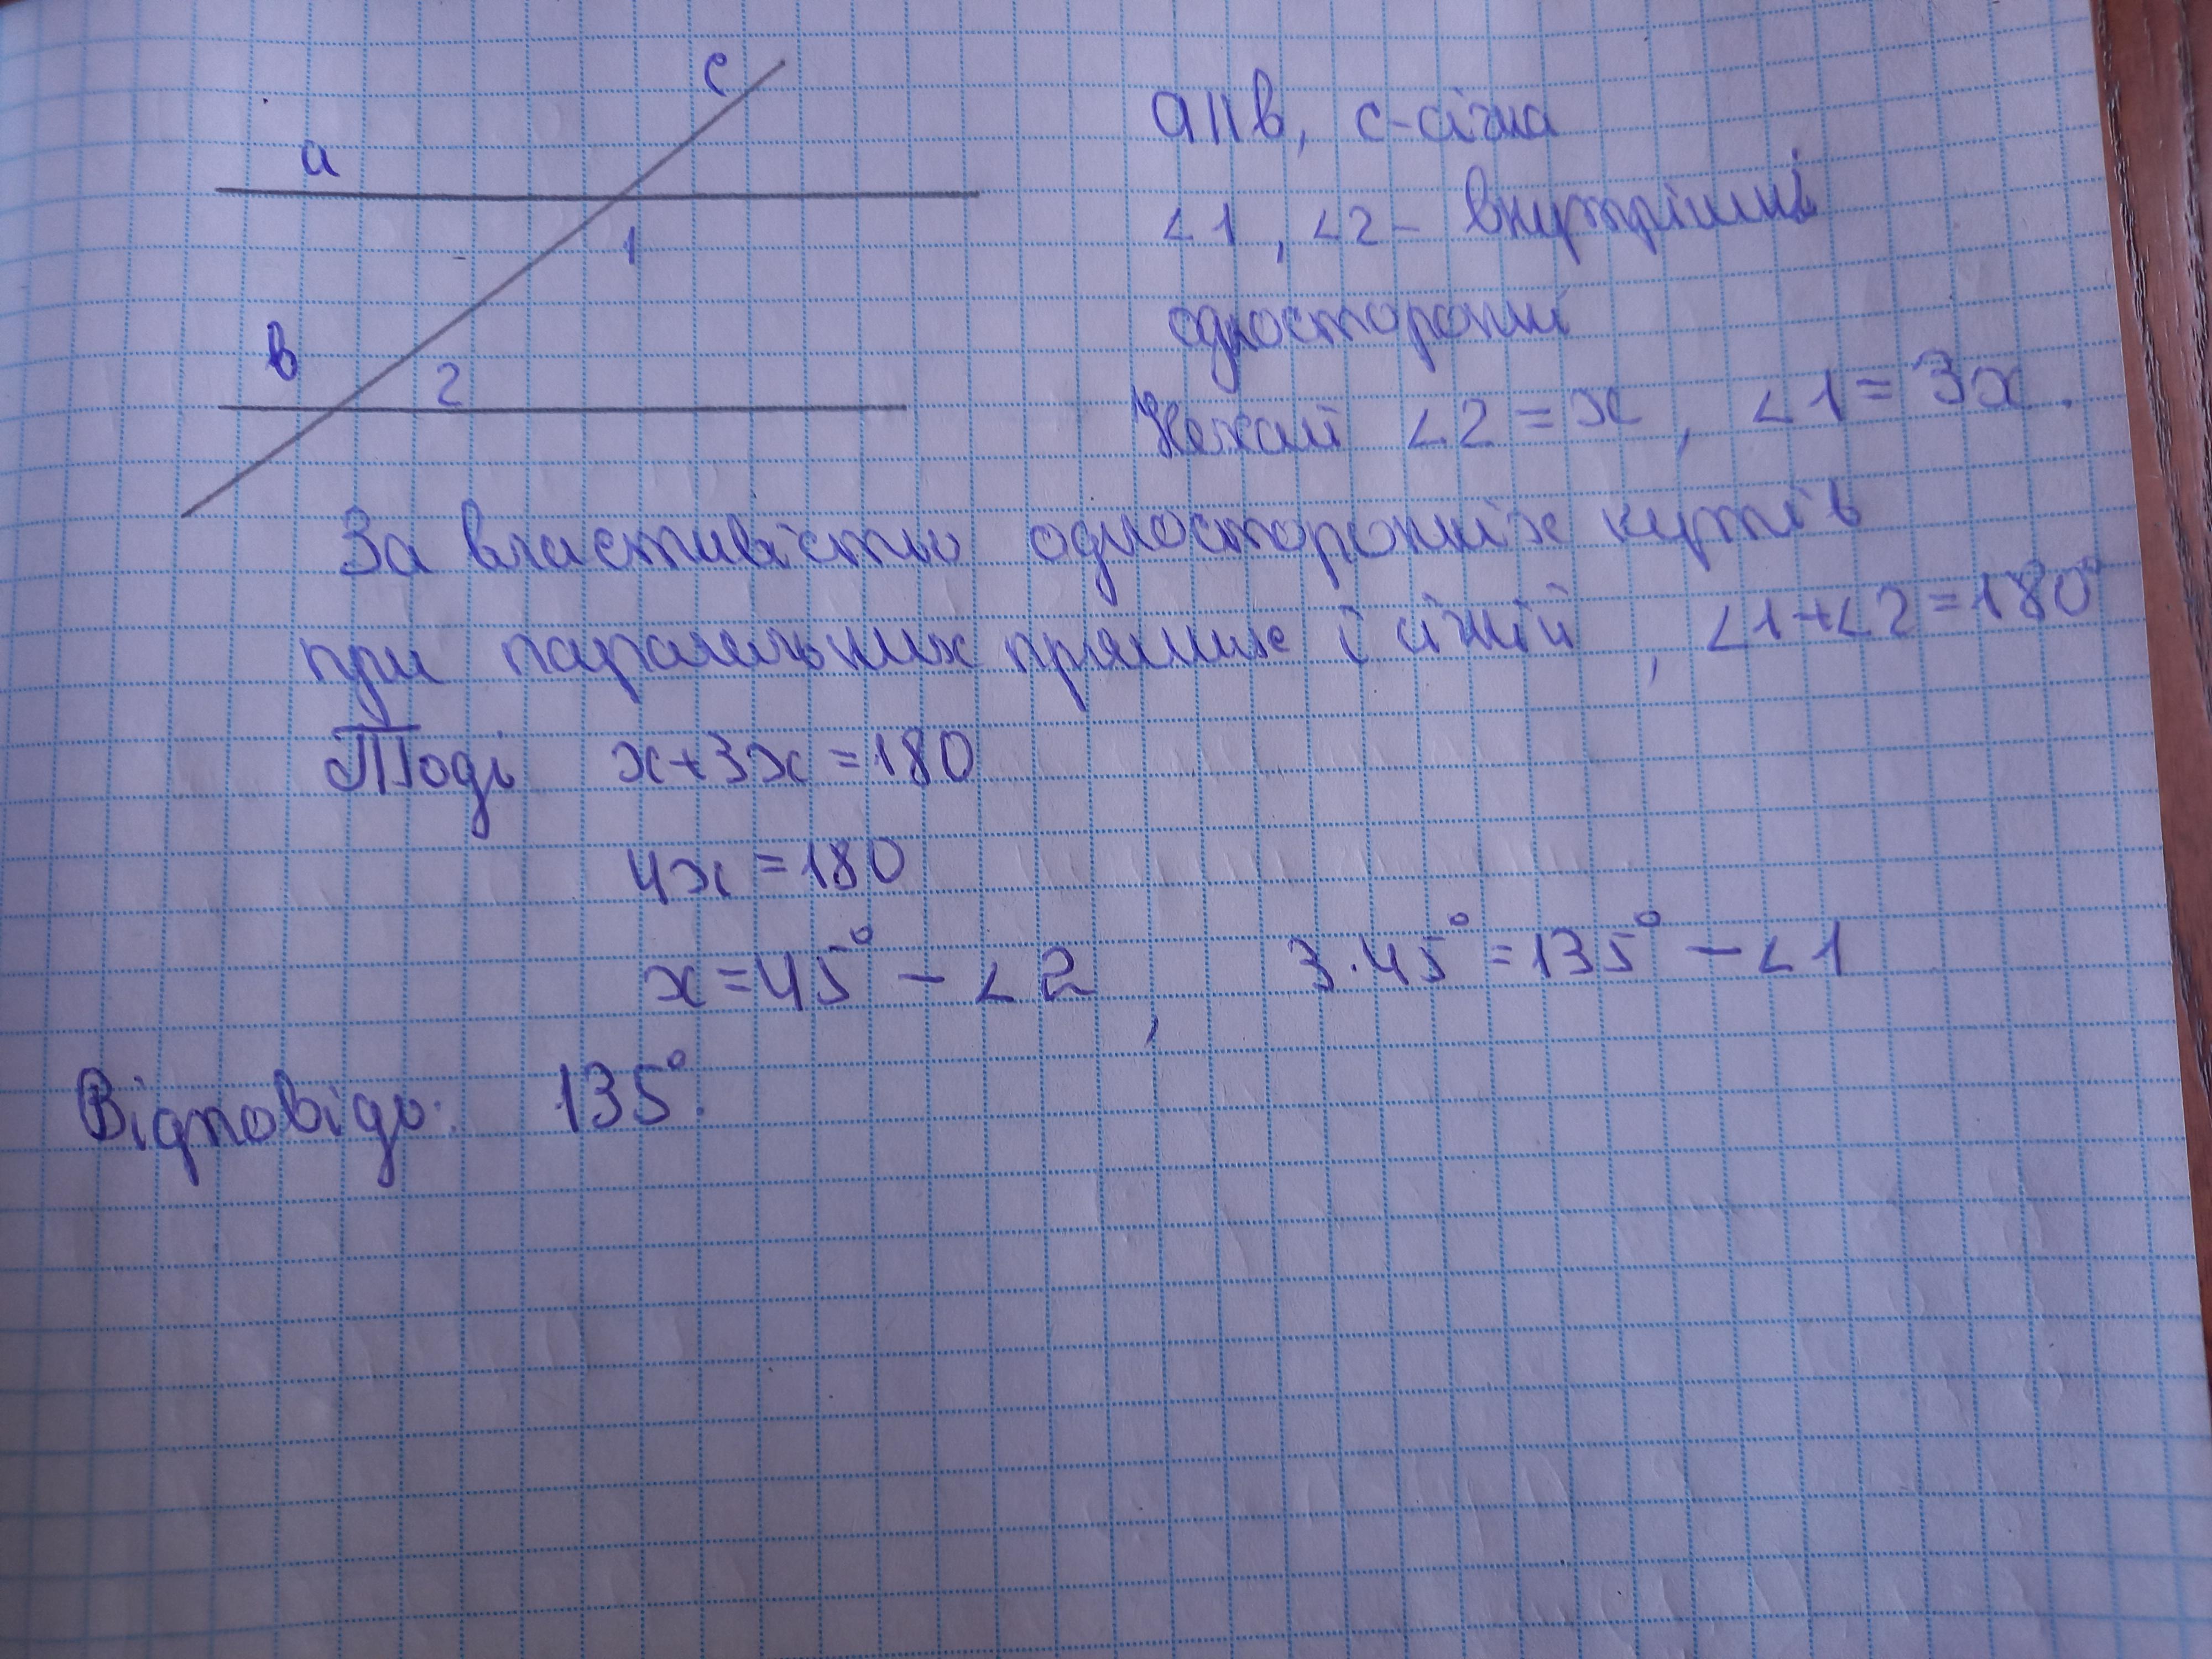 c
a
1
в
2
a||b, c-січна
∠1, ∠2 - внутрішні
односторонні
Нехай ∠2 = x, ∠1 = 3x.
За властивістю односторонніх кутів
при паралельних прямих і січній, ∠1+∠2=180°
Тоді x+3x=180
4x=180
x=45° - ∠2, 3·45°=135° - ∠1
Відповідь: 135°.